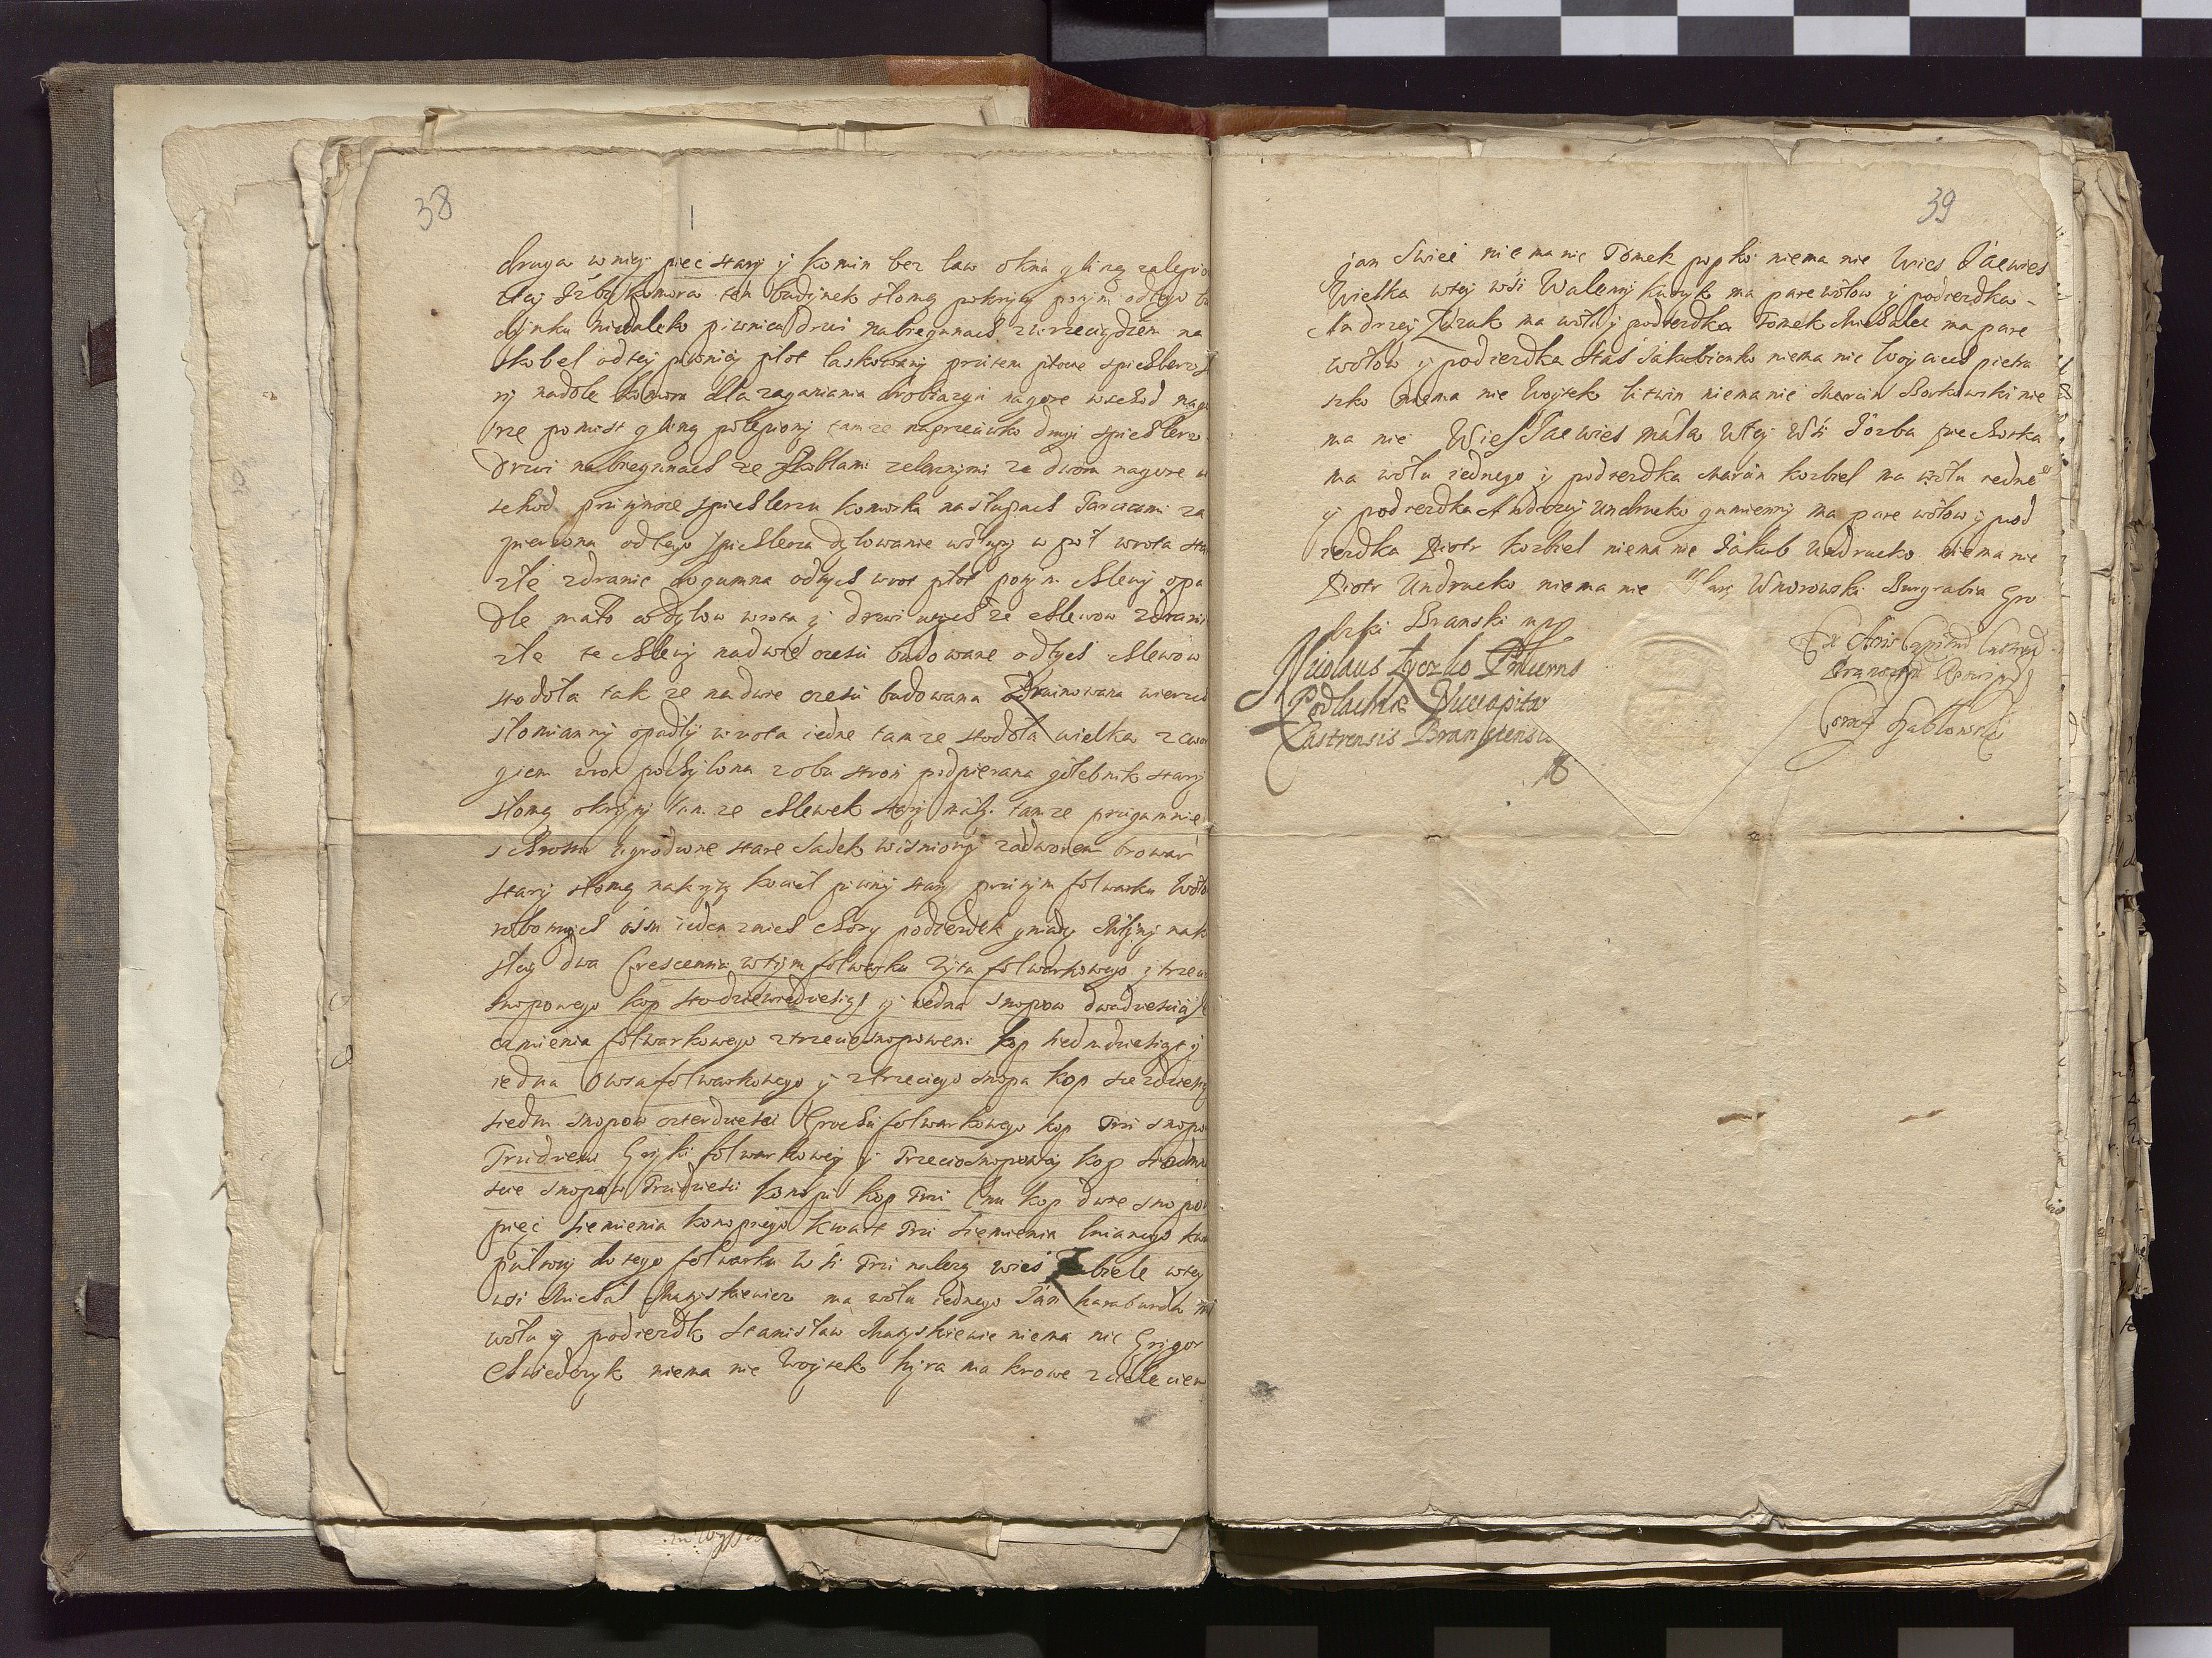 38
druga w niej piec stary y komin bez law okna gliną zalepio
tey Izby komora ten budynek słomą pokryty przym od tego bu
dynku niedaleko piwnica drzwi nabiegunach zwrzeciądzem na
skobel od tey piwnicy płot laskowany prętem spichlerz
ny nadole komora dla zaganiania drobiazgu nagore wschod nago
rze pomost gliną polepiony tamze naprzeciwko drugi spichlerz
Drzwi nabiegunach ze skoblami zelaznymi ze dwora nagore w
schod przytymze spichlerzu komorka nasłupach Tarcicami za
pierzona od tego spichlerza dylowanie w słupy w poł wrota sta
złe zdranic do gumna odtych wrot płot przy n. chlewy opa
dłe mało co dylow wrota y drzwi utych ze chlewow zdranic
złe te chlewy nadwie częsci budowane odtych chlewow
stodoła tak ze nadwie częsci budowana zruinowana wierzch
słomianny opadły wrota iedne tamze stodoła wielka zewo
giem wrot pochylona zobu stron podpierana gołebnik stary
słomą okryty tamze chlewek stary mały tamze przygumnie
z chrostu ogrodzone stare Sadek wisniowy zadworem browar
stary słomą nakryty kocieł piwny stary przytym folwarku Woło
robotnych osm ieden znich chory podiezdek gniady
dwa Crescentia wtym folwarku Zyta folwarkowego y trzecio
snopowego kop stodziewiędziesiąt y iedna snopow dwadziescia Ję
czmienia folwarkowego ztrzeciosnopowem kop siedmdziesiąt y
iedna Owsa folwarkowego y ztrzeciego snopa kop szescdziesiąt
siedm snopow czterdziesci Grochu folwarkowego kop Trzi snopo
Trzidziesci Gryki folwarkowey y Trzeciosnopowey kop siedmna
scie snopow Trzidziesci konopi kop Trzi lnu kop dwie snopow
pięć siemienia konopnego kwart Trzi siemienia lnianego kwa
pułtory do tego folwarku wsi Trzi nalezą wies Zabiele wtey
wsi Michał Matyskiewicz ma wołu iednego Jan karaburda ma
wołu y podiezdk Stanisław Matyskiewic niema nic Grygor
Chwiedczyk niema nic Woytek hyra ma krowe zcielęciem
39
jan Swicc niema nic Tomek popko niema nic Wies Pacwies
Wielka wtey wsi Walenty kudyk ma pare wołow y podiezdka
Andrzey Zdzuk ma wołu y podiezdka Tomek Michalec ma pare
wołow y podiezdka Stas Jakubienko niema nic Woyciech pietra
szko niema nic Woytek litwin niema nic Marcin Borkowski nie
ma nic Wies Pacwies mała Wtey Wsi Jozba piechotka
ma wołu iednego y podiezdka Marcin kozbiel ma wołu iedneo
y podiezdka Andrzey Undrucko gumienny ma pare wołow y pod
iezdka Piotr kozbiel niema nic Jakub Undrucko niema nic
Piotr Undrucko niema nic Wnorowski Burgrabia Gro
dzki Branski mp
Nicolaus Łyczko Pincerna
Podlachiæ Vicecapitan
Castrensis Branscensis
Ex Actis